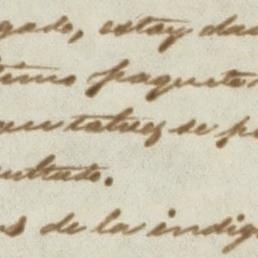 gado, estoy da
timo paquete
un talvez se p
ultado.
s de la indig